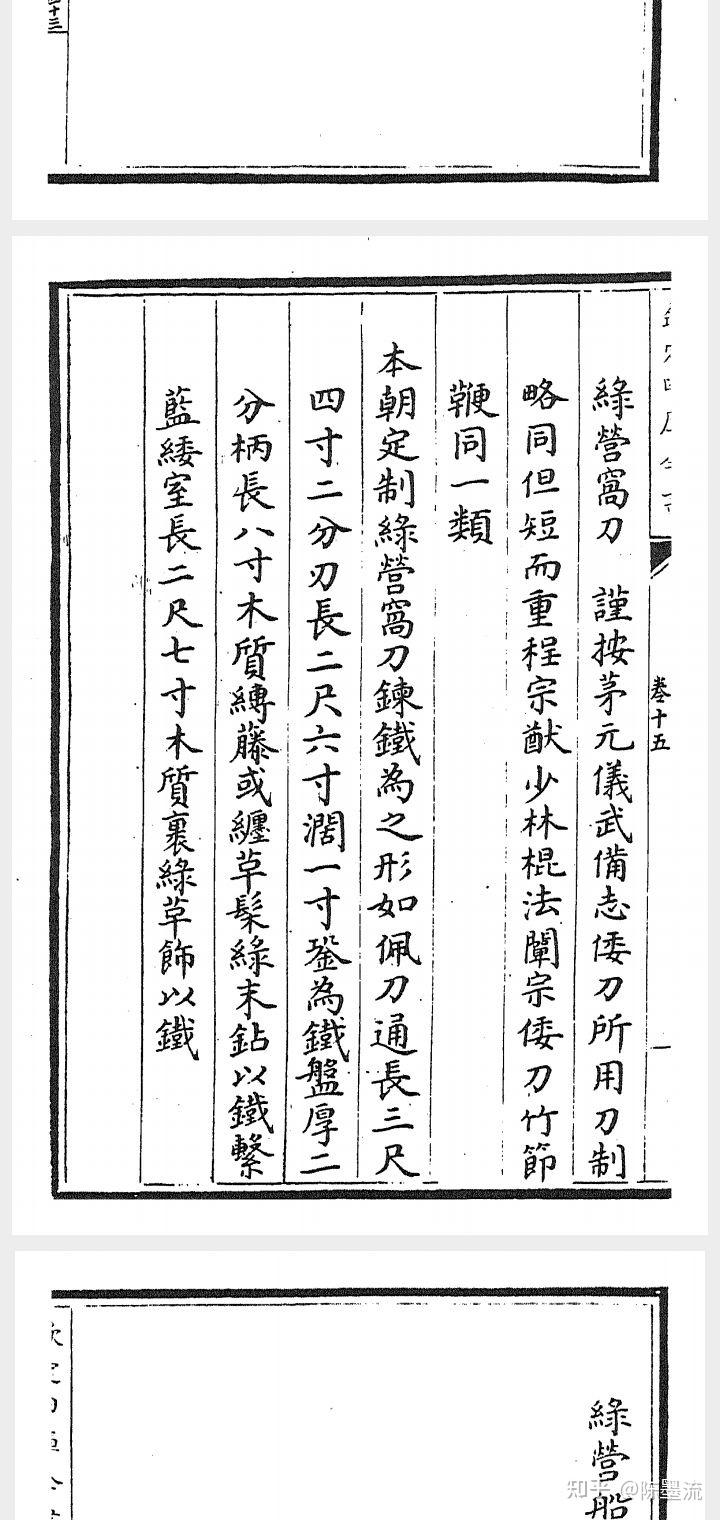 十三
卷十五
綠營窩刀　謹按茅元儀武備志倭刀所用刀制
略同但短而重程宗猷少林棍法闡宗倭刀竹節
鞭同一類
本朝定制綠營窩刀鍊鐵為之形如佩刀通長三尺
四寸二分刃長二尺六寸濶一寸銎為鐵盤厚二
分柄長八寸木質縛藤或纒革髹綠末鉆以鐵繫
藍緌室長二尺七寸木質裹綠革飾以鐵
綠營船
知乎 @陈墨流